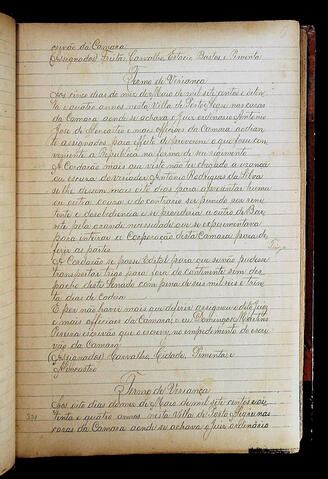 crivão da Camara
(Assignados) Freitas, Carvalho, Estacio Bastos e Pimenta
Termo de Vriança
Aos cinco dias do mez de Maio de mil sete centos e seten
ta e quatro annos nesta Villa de Porto Alegre nas casas
da Camara aonde se achava o Juiz ordinario Antonio
José de Mencastro e mais officiaes da Camara
assignados, para effeito de proverem o que fosse con
veniente a Republica na forma de seu regimento
A Cordarão mais que visto não ter chegado a arança
ou escusa do Vereador Antonio Rodrigues da Silva
se lhe dessem mais oito dias para apresentar huma
ou outra cousa e do contrario ser punido por remi
tente e desobediencia e se procederia a outro de Bar
rete pela grande necessidade que se experimentava
para inteirar a Corporação desta Camara para de
ferir as partes
A Cordarão se passe Edital para que senão pudesse Trigo
transportar trigo para fora do continente sem des
pacho deste Senado com pena de seis mil reis e trin
ta dias de cadeia
E por não haver mais que deferir assignou o dito Juiz
e mais officiaes da Camara; e eu Domingos Martins
Pereira escrivão que o escrevy no impedimento do escri
vão da Camara
(Assignados) Carvalho, Cidade, Pimenta e
Mencastro
Termo de Vriança
Aos oito dias do mez de Maio de mil sete centos e se
tenta e quatro annos nesta Villa de Porto Alegre nas
casas da Camara aonde se achava o Juiz ordinario